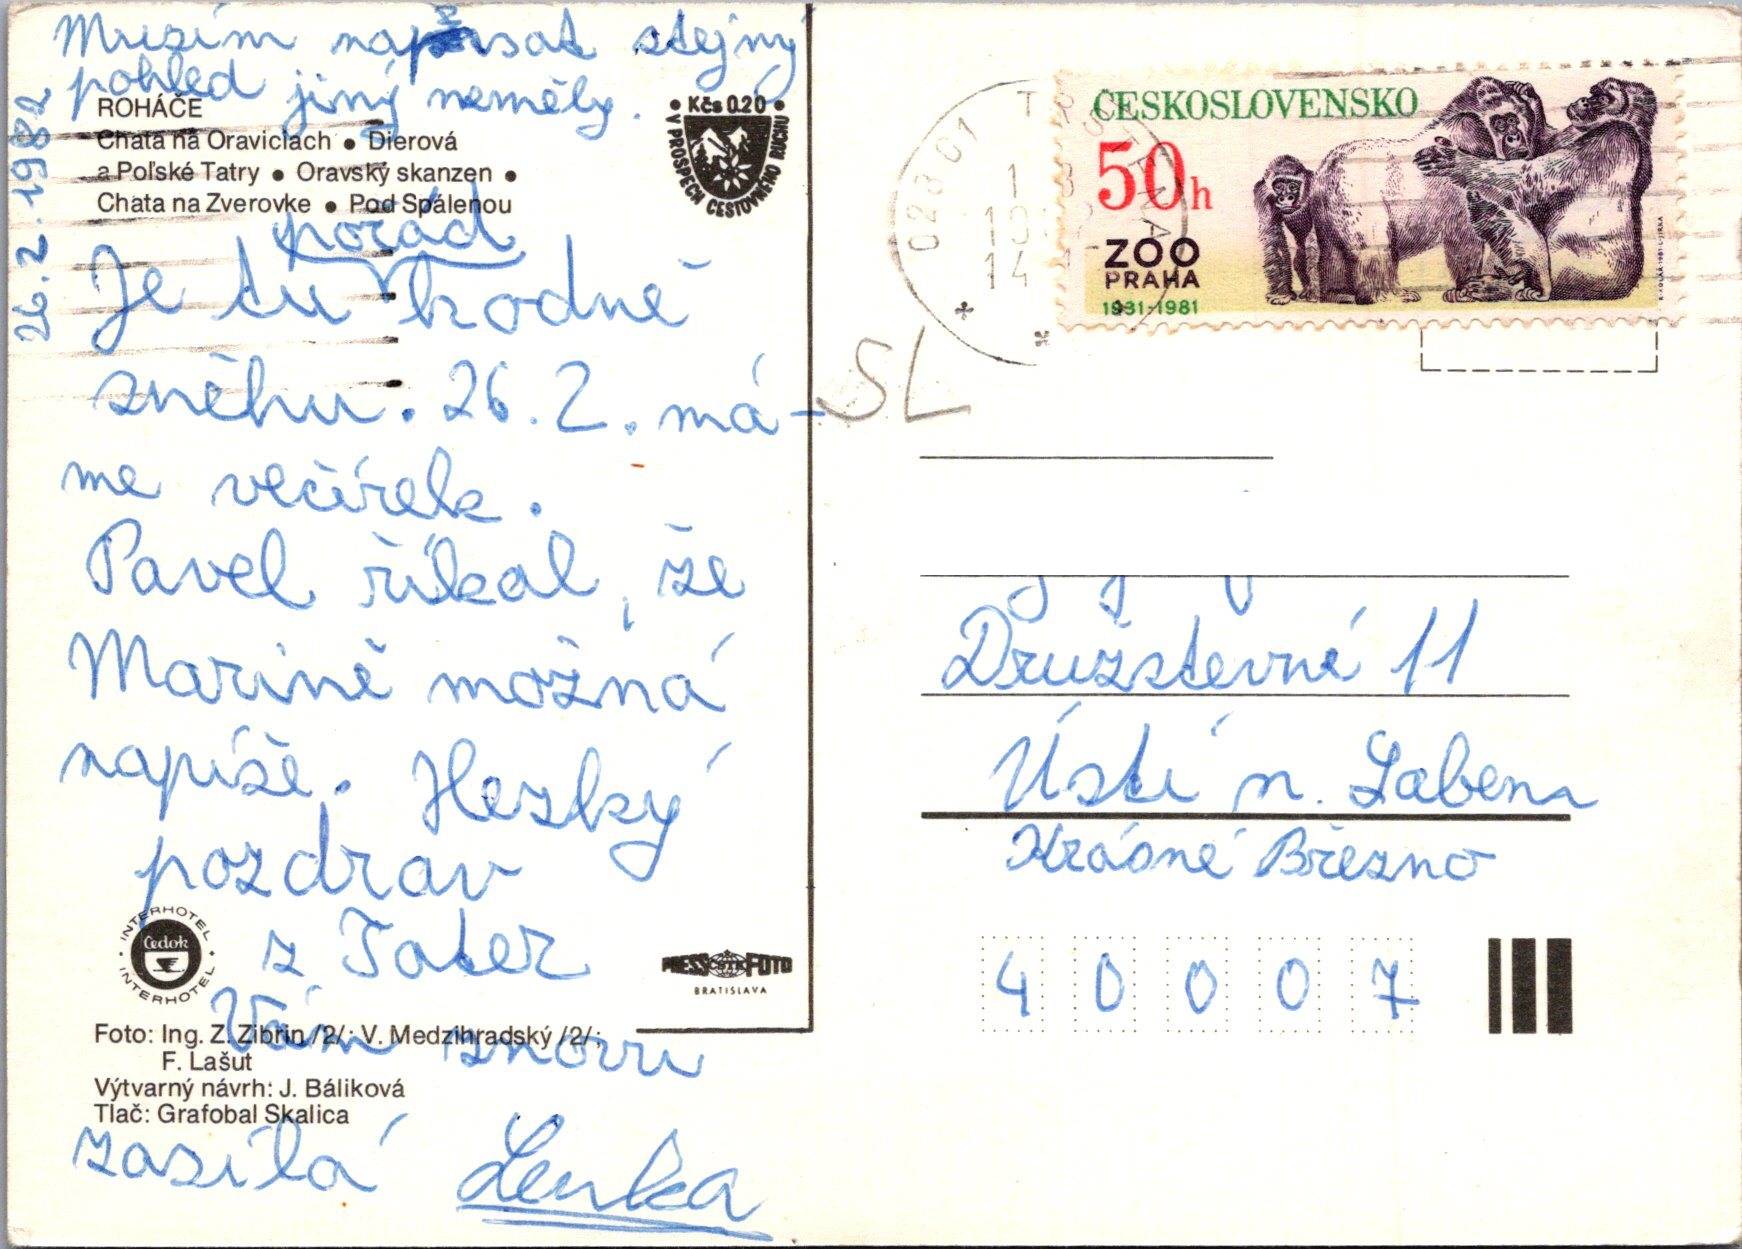 Musím napsat stejný
pohled jiný neměly.
26.2.1982
ROHÁČE
Chata na Oraviciach ● Dierová
a Poľské Tatry ● Oravský skanzen ●
Chata na Zverovke ● Pod Spálenou
• Kčs 0.20 •
V PROSPECH CESTOVNÉHO RUCHU
pořád
Je tu hodně
sněhu. 26. 2. má-
me večírek.
Pavel říkal, že
Marině možná
napíše. Hezký
pozdrav
z Tater
Vám znovu
zasílá Lenka
INTERHOTEL
Čedok
INTERHOTEL
PRESSFOTO
BRATISLAVA
Foto: Ing. Z. Zibrín /2/; V. Medzihradský /2/;
F. Lašut
Výtvarný návrh: J. Báliková
Tlač: Grafobal Skalica
ČESKOSLOVENSKO
50h
ZOO
PRAHA
1931-1981
SL
Družstevné 11
Ústí n. Labem
Krásné Březno
40007